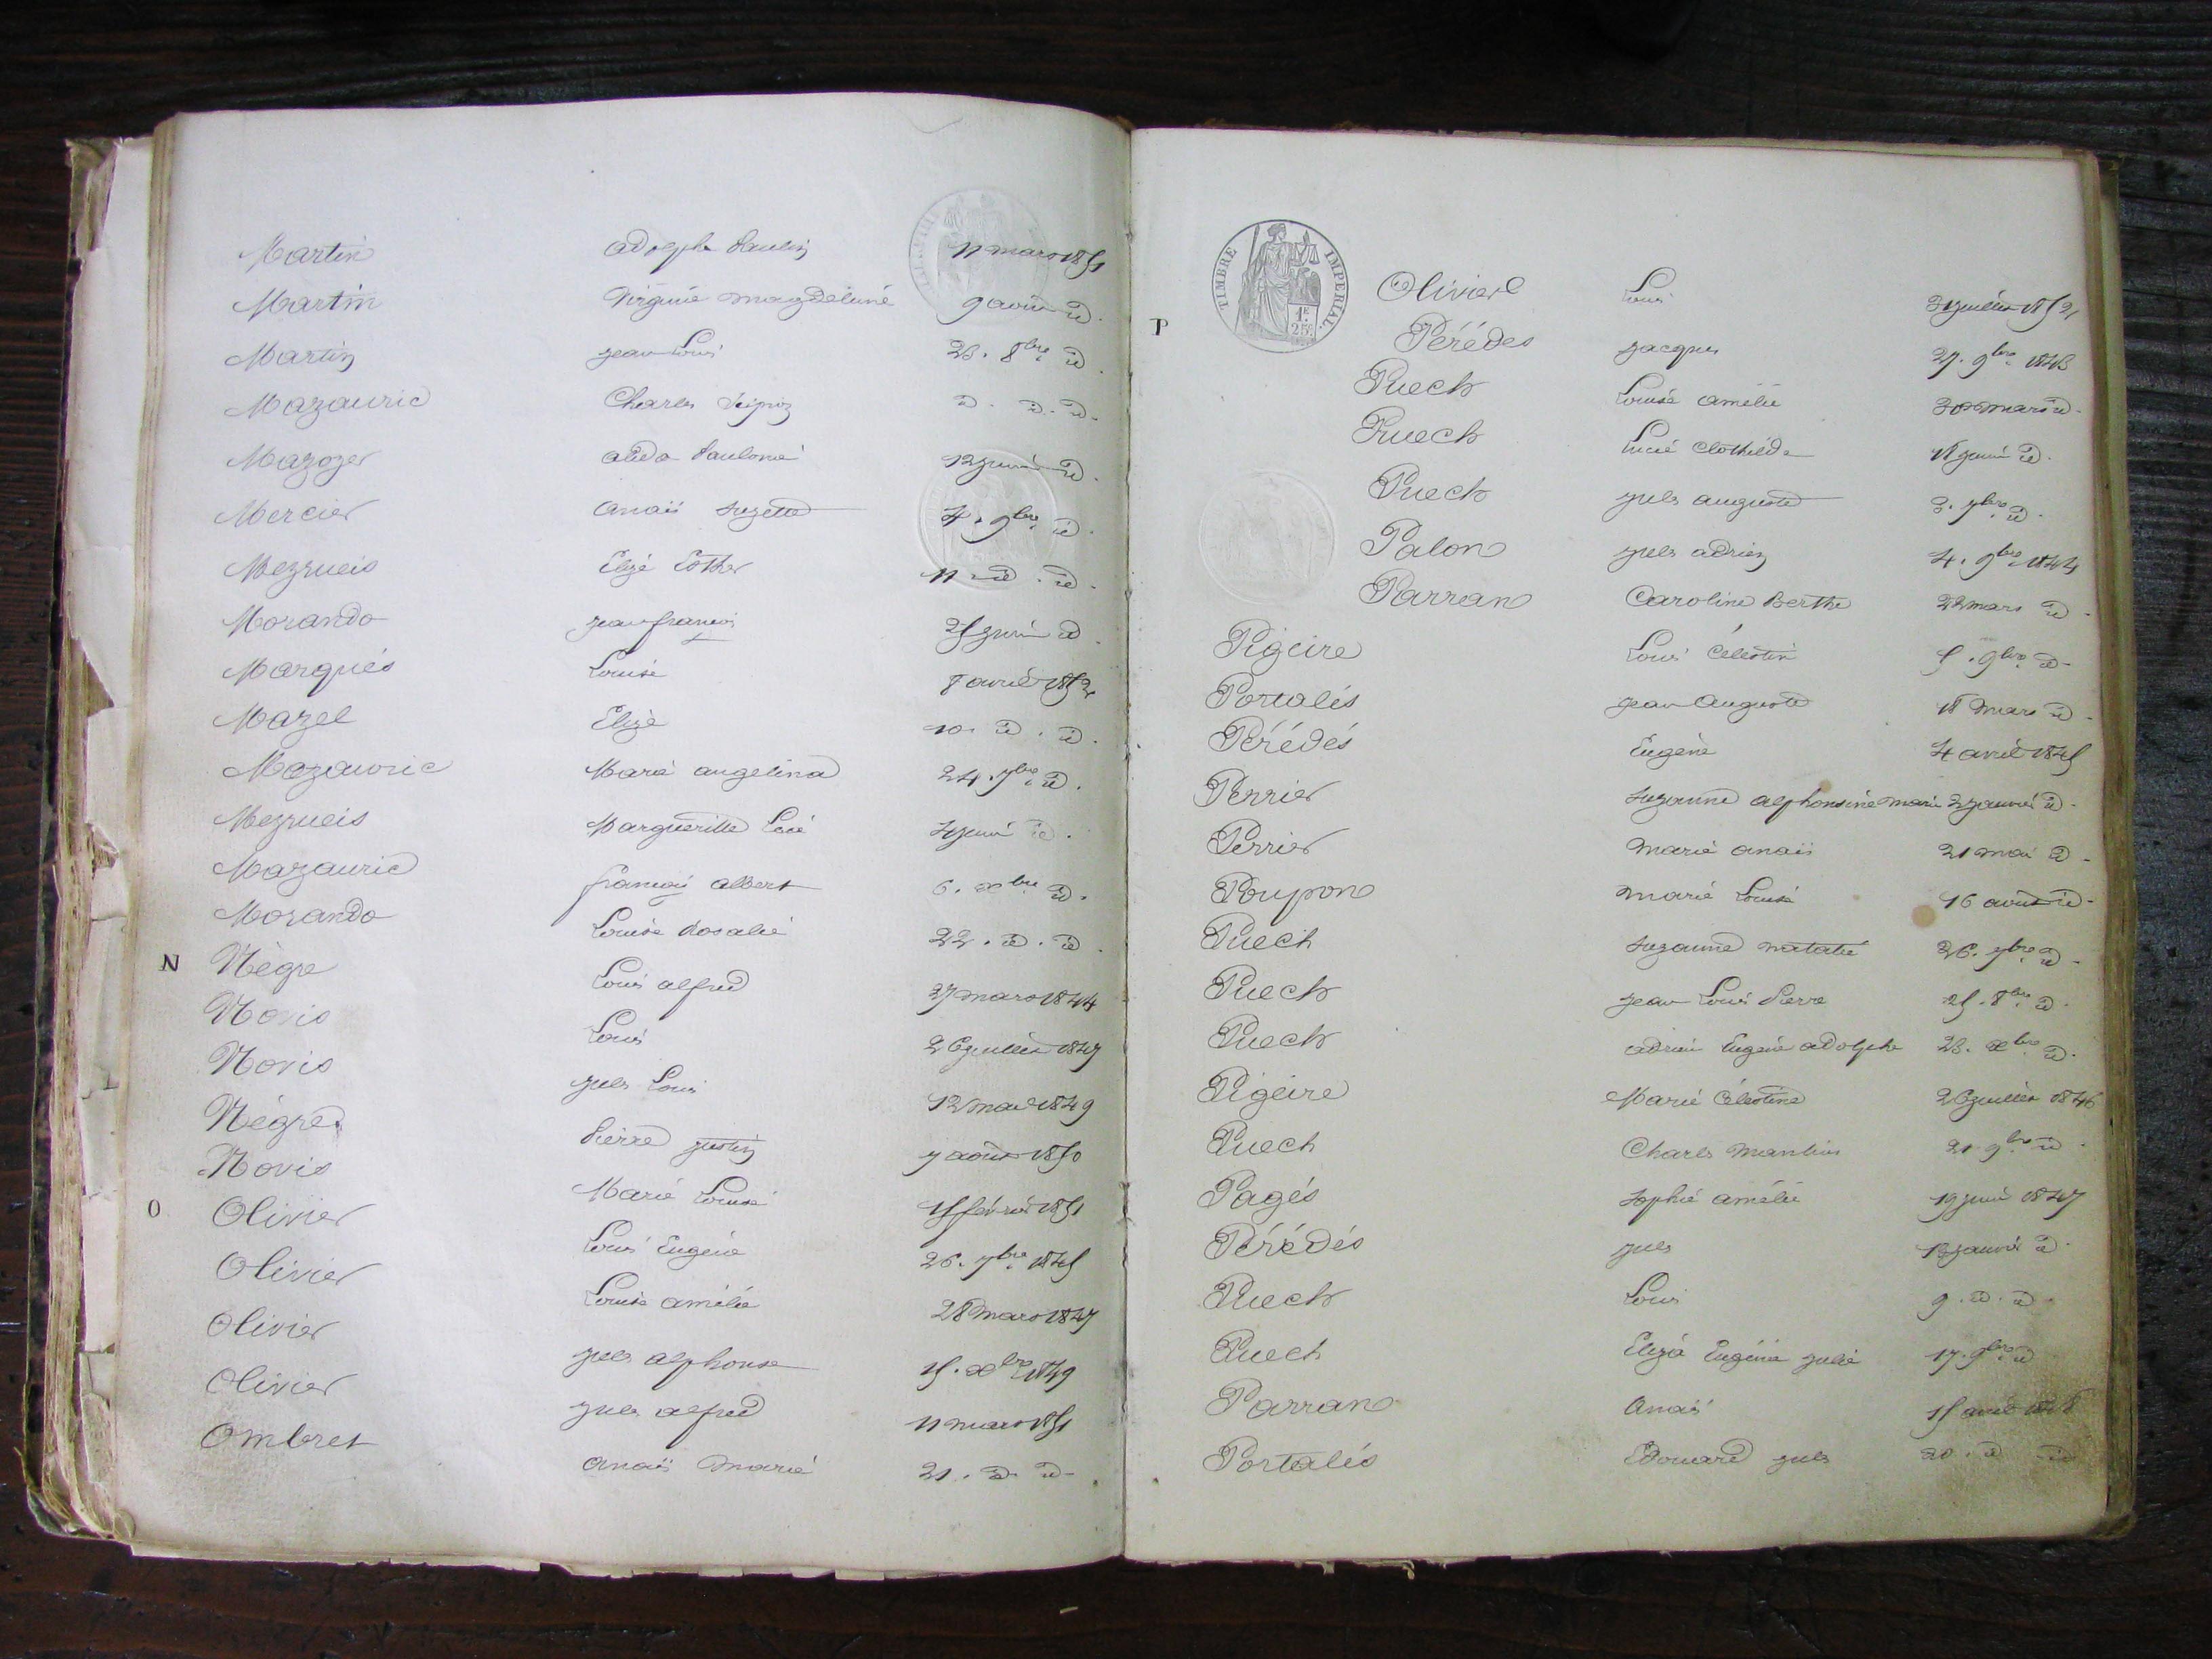 Martin adolphe Paulin 11 mars 1851
Martin Virginie magdeleine 9 aout id.
Martin jean Louis 23. 8bre id.
Mazauric Charles Scipion id. id. id.
Mazozer alida Paulonie 12 juin id.
Mercier anaïs suzette 4. 9bre id.
Mezrueis Elizé Esther 11 id. id.
Morando jean françois 25 juin id.
Marqués Louise 8 avril 1852
Mazel Elizé 10. id. id.
Mazauric Marie angelina 24. 7bre id.
Mezrueis Marguerille 4 juin id.
Mazauric françois albert 6. xbre id.
Morando Louise Rosalie 22. id. id.
N Nègre Louis alfred 27 mars 1844
Novis Louis 26 juillet 1847
Novis jules Louis 12 mai 1849
Négre Pierre justin 7 aout 1850
Novis Marie Louise 15 février 1851
O Olivier Louis Eugène 26. 7bre 1845
Olivier Louise amélie 28 mars 1847
Olivier jules alphonse 15. xbre 1849
Olivier jules alfred 11 mars 1851
Ombret anaïs marie 21. id. id.
TIMBRE IMPERIAL.
1F. 25c.
Olivier Louis 31 juillet 1852
P Pérédes jacques 27. 9bre 1843
Puech Louise amélie 30 mars id.
Puech Lucie Clothilde 18 juin id.
Puech jules auguste 3. 7bre id.
Palon jules adrien 4. 9bre 1844
Parran Caroline Berthe 22 mars id.
Pigeire Louis Célestin 5. 9bre id.
Portalés jean Auguste 18 mars id.
Pérédés Eugène 4 avril 1845
Perrier suzanne alphonsine marie 2 janvier id.
Perrier marie anaïs 21 mai id.
Poupon marie Louise 16 aout id.
Puech suzanne natalie 26. 7bre id.
Puech jean Louis Pierre 25. 8bre id.
Puech adrien Eugène adolphe 23. xbre id.
Pigeire Marie Célestine 26 juillet 1846
Puech Charles 21 9bre id.
Pagés sophie amélie 19 juin 1847
Pérédés jules 13 janvier id.
Puech Louis 9. id. id.
Puech Eliza Eugénie julie 17. 9bre id.
Parran Anaïs 15 avril 1848
Portalés Edouard jules 20. id. id.